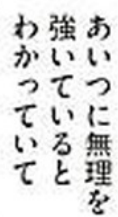 あいつに無理を
強いていると
わかっていて